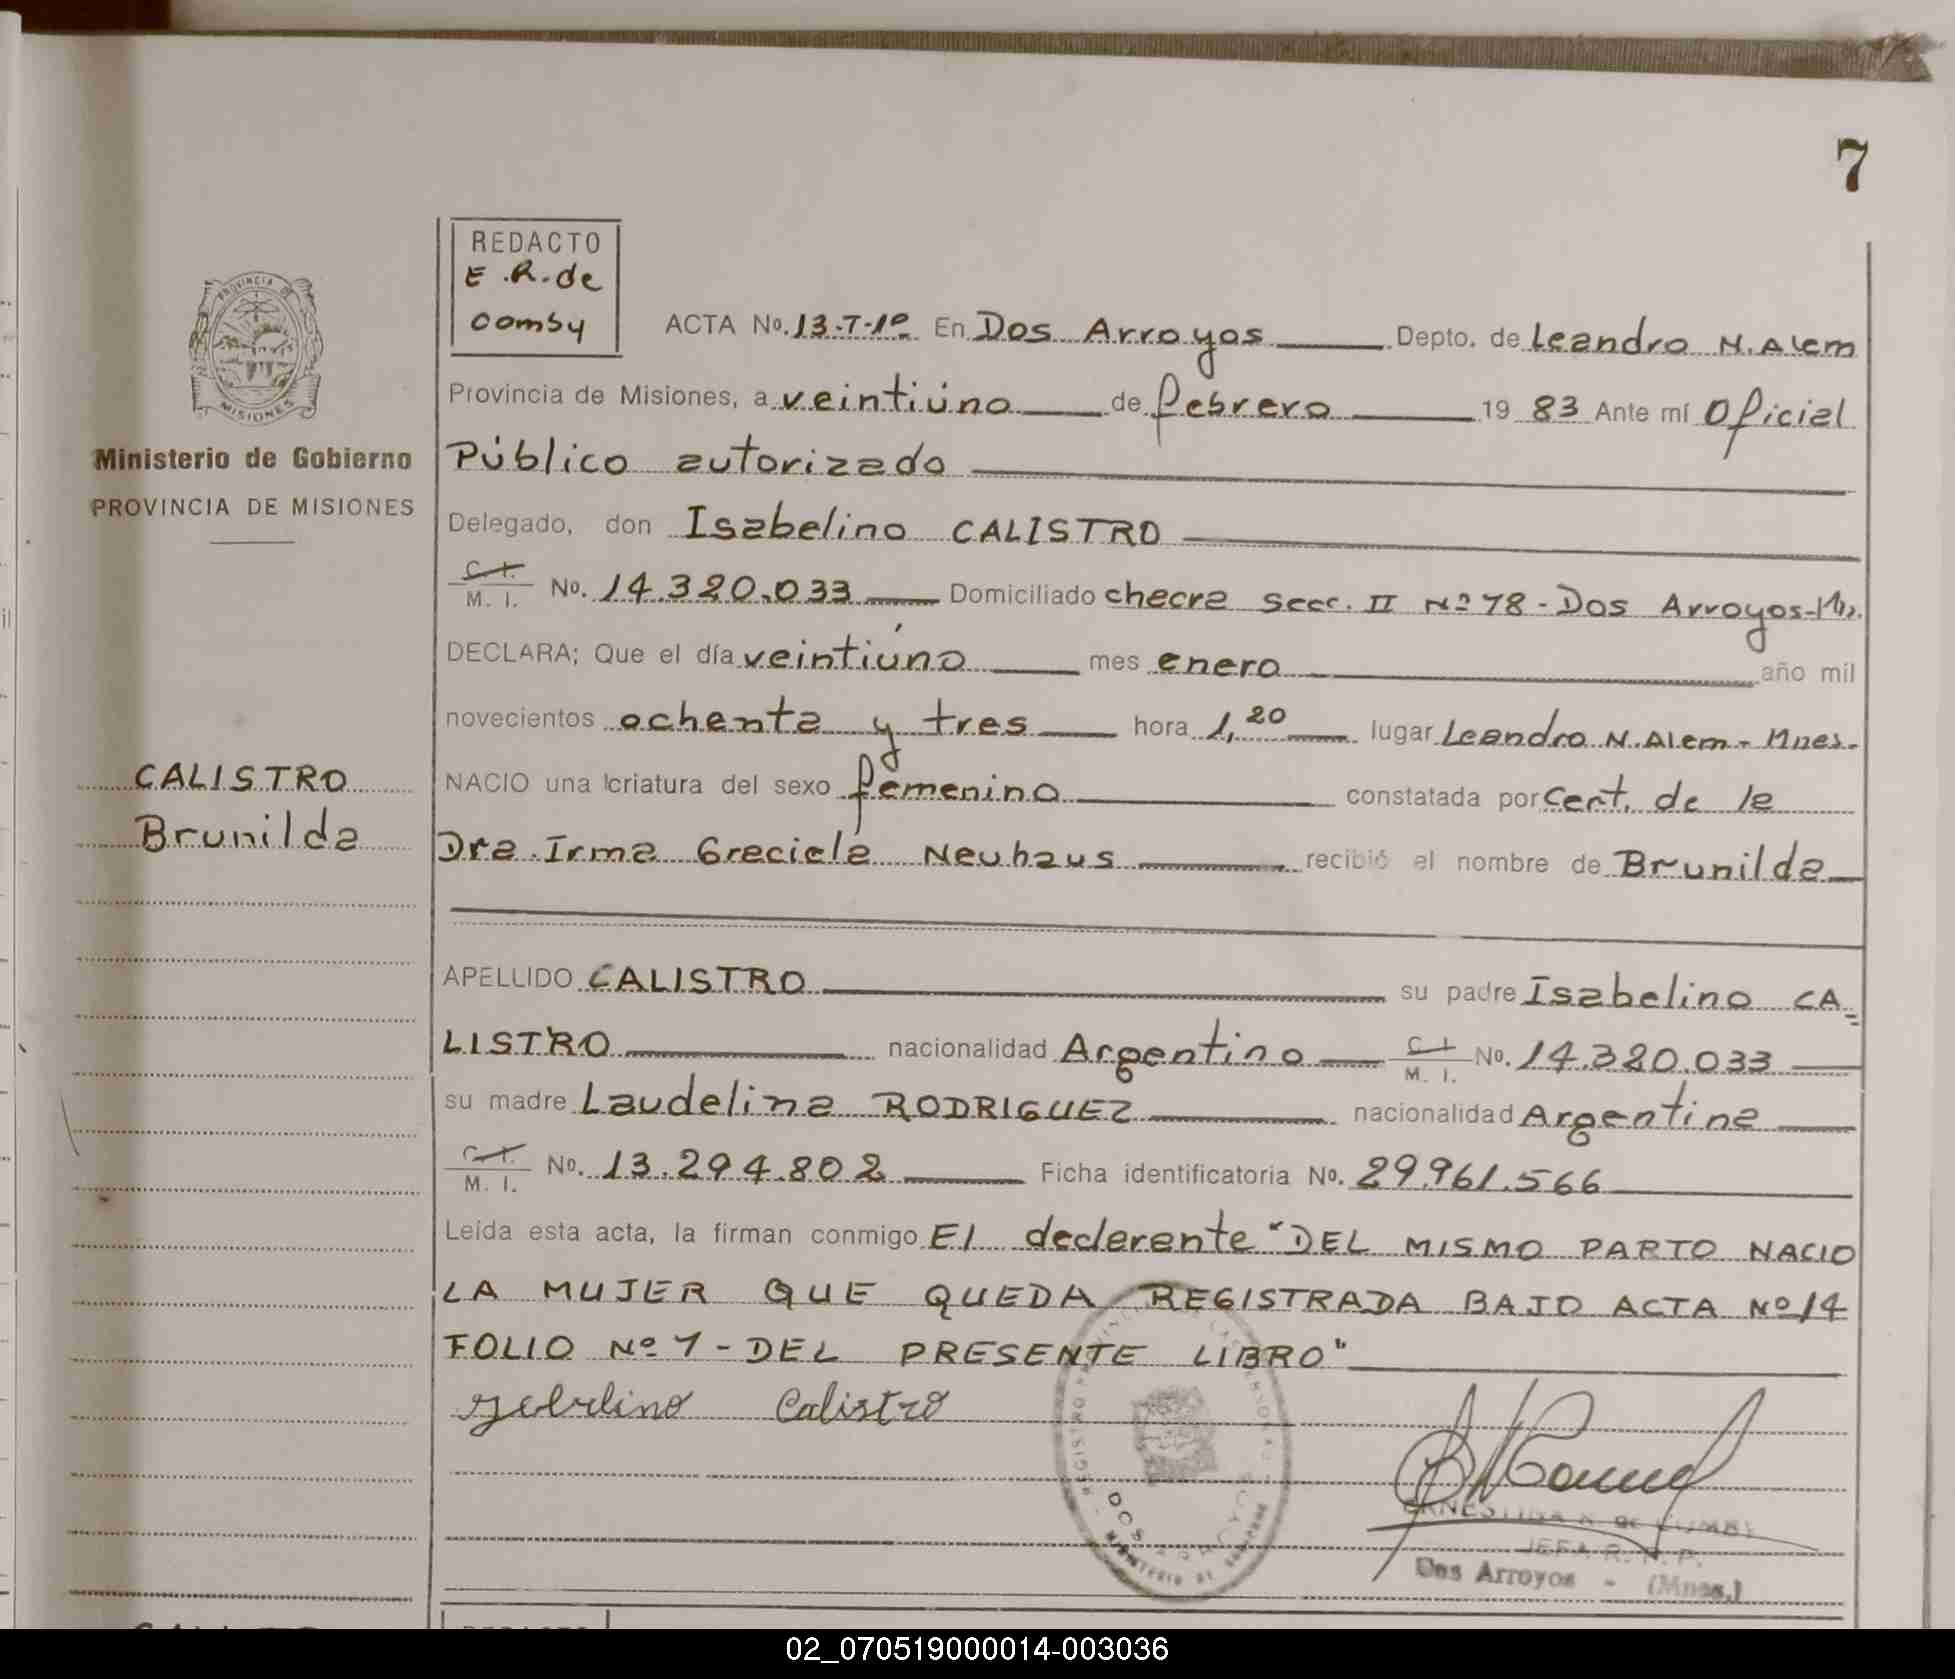 7
REDACTO
E.R.de
Comby
PROVINCIA DE
MISIONES
Ministerio de Gobierno
PROVINCIA DE MISIONES
CALISTRO
Brunilda
ACTA No. 13-T-1º En Dos Arroyos Depto. de Leandro N. Alem
Provincia de Misiones, a veintiúno de febrero 19 83 Ante mí Oficial
Público autorizado
Delegado, don Isabelino CALISTRO
C. I.
M. I. No. 14.320.033 Domiciliado chacra Secc. II Nº 78 - Dos Arroyos-
DECLARA; Que el día veintiúno mes enero año mil
novecientos ochenta y tres hora 1,20 lugar Leandro N. Alem - Mnes.
NACIO una criatura del sexo femenino constatada por Cert. de la
Dra. Irma Graciela Neuhaus recibió el nombre de Brunilda
APELLIDO CALISTRO su padre Isabelino CA
LISTRO nacionalidad Argentino C. I. M. I. No. 14.320.033
su madre Laudelina RODRIGUEZ nacionalidad Argentina
C. I.
M. I. No. 13.294.802 Ficha identificatoria No. 29.961.566
Leída esta acta, la firman conmigo El declarente "DEL MISMO PARTO NACIO
LA MUJER QUE QUEDA REGISTRADA BAJO ACTA Nº 14
FOLIO Nº 7 - DEL PRESENTE LIBRO"
Calistro
DOS ARROYOS
ERNESTINA R. de COMBY
JEFA R. P.
Dos Arroyos - (Mnes.)
02_070519000014-003036